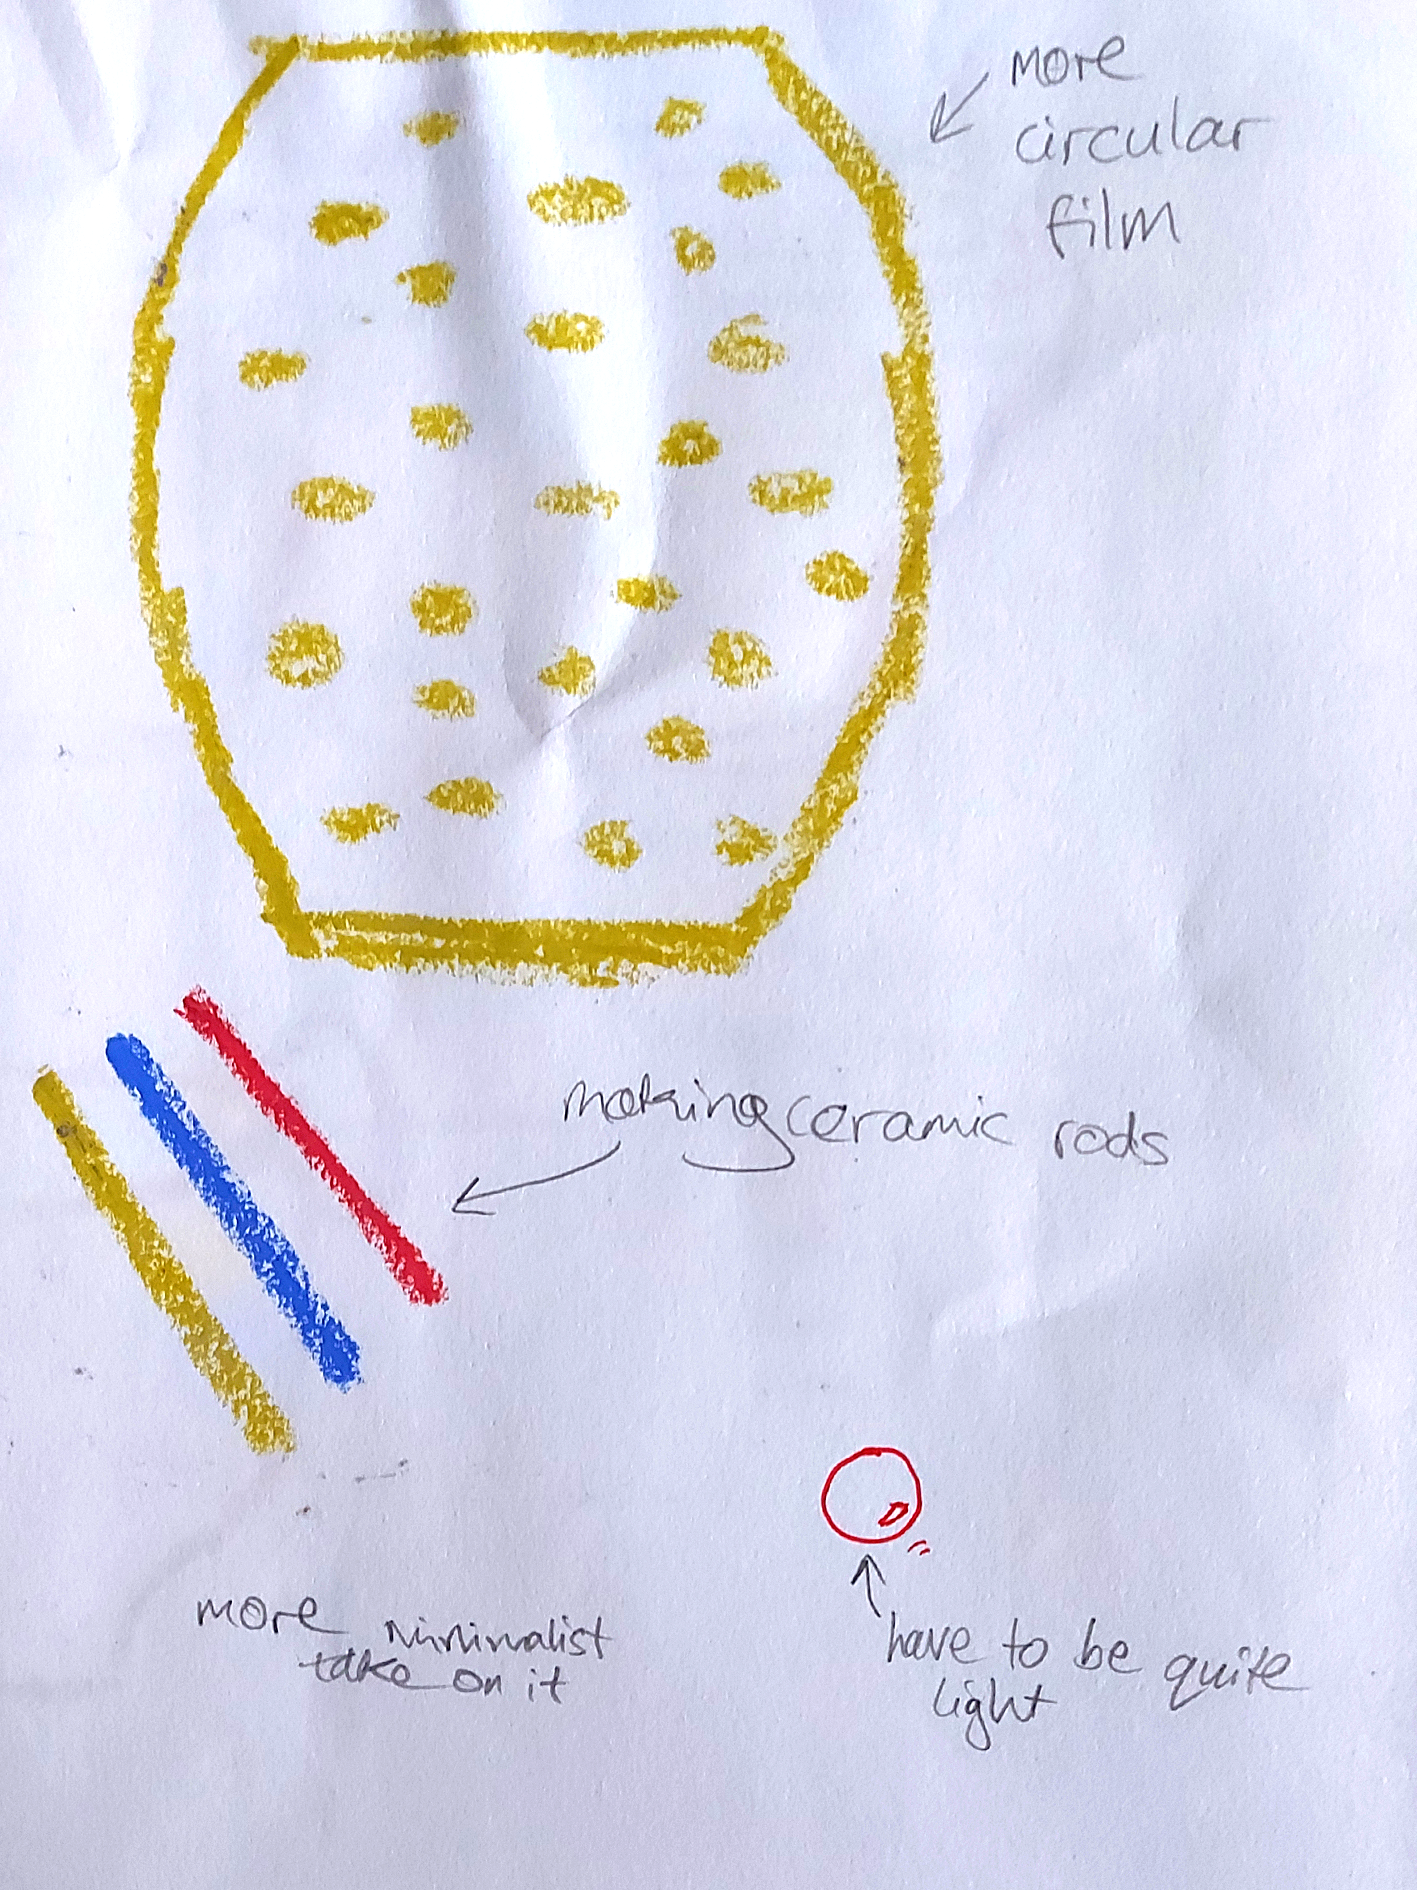 more
circular
film
making ceramic rods
more minimalist
take on it
have to be quite
light